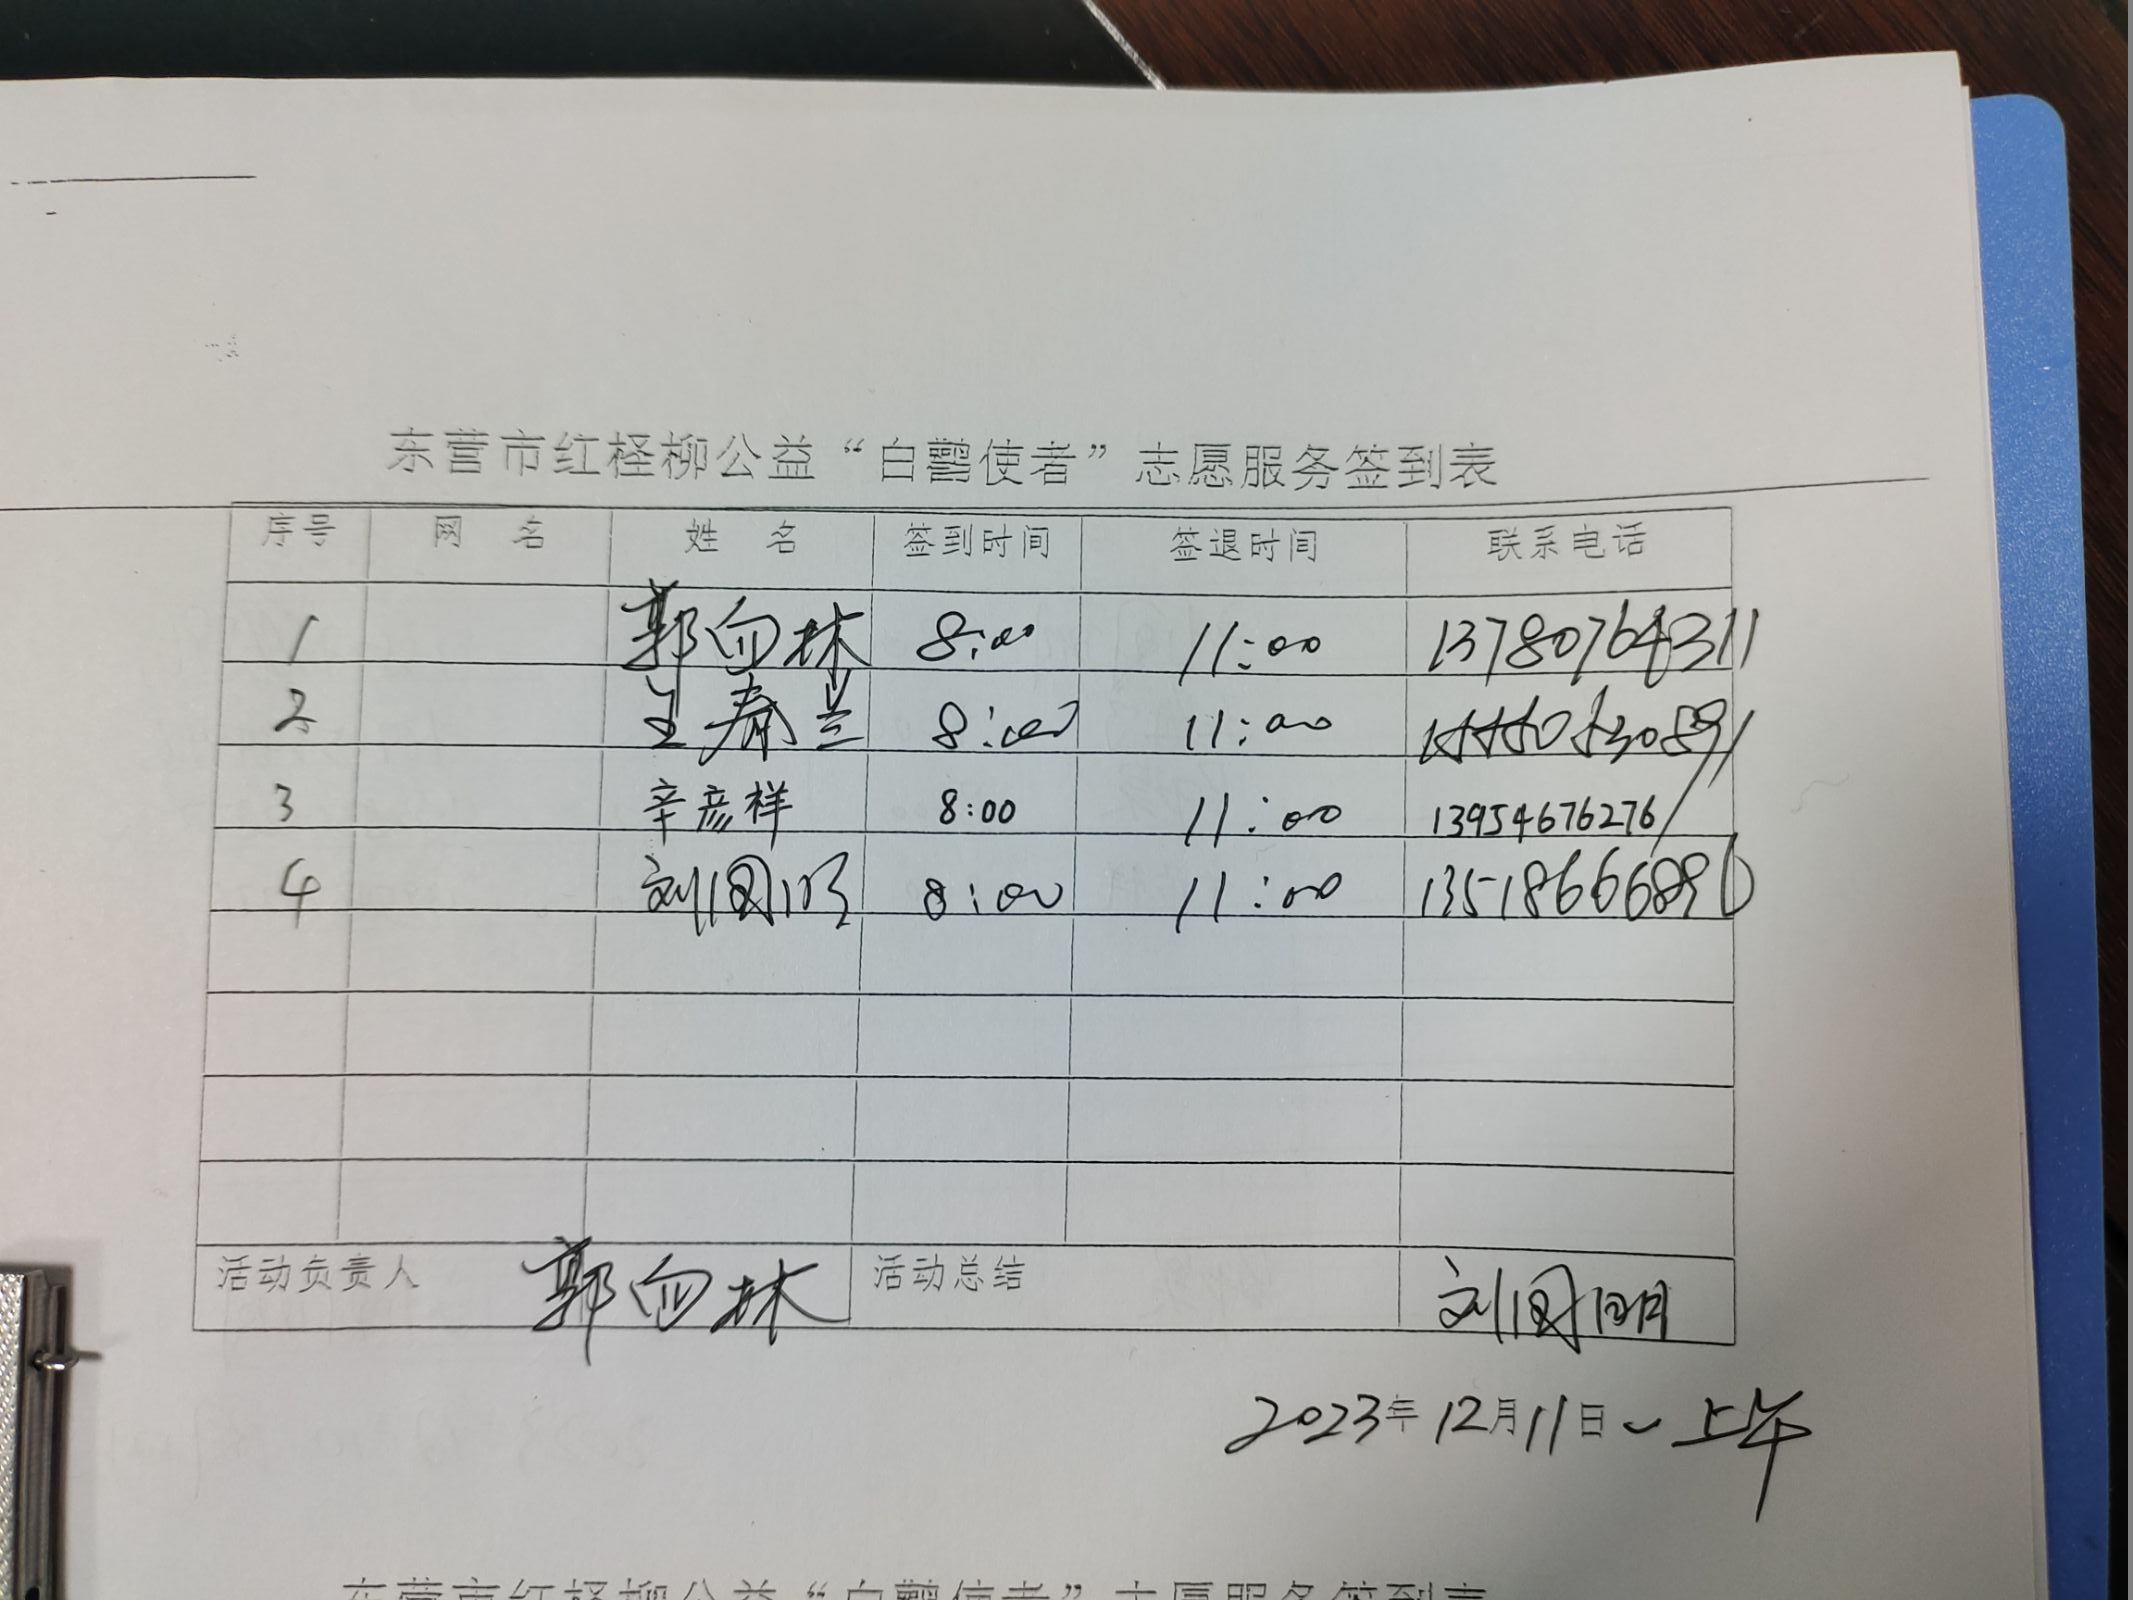 东营市红柽柳公益“白鹳使者”志愿服务签到表
序号 网 名 姓 名 签到时间 签退时间 联系电话
1 郭向林 8:00 11:00 13780764311
2 王春兰 8:00 11:00
3 辛彦样 8:00 11:00 13954676276
4 刘国明 8:00 11:00 13518666896
活动负责人 郭向林 活动总结 刘国明
2023年12月11日 上午
东营市红柽柳公益“白鹳使者”志愿服务签到表